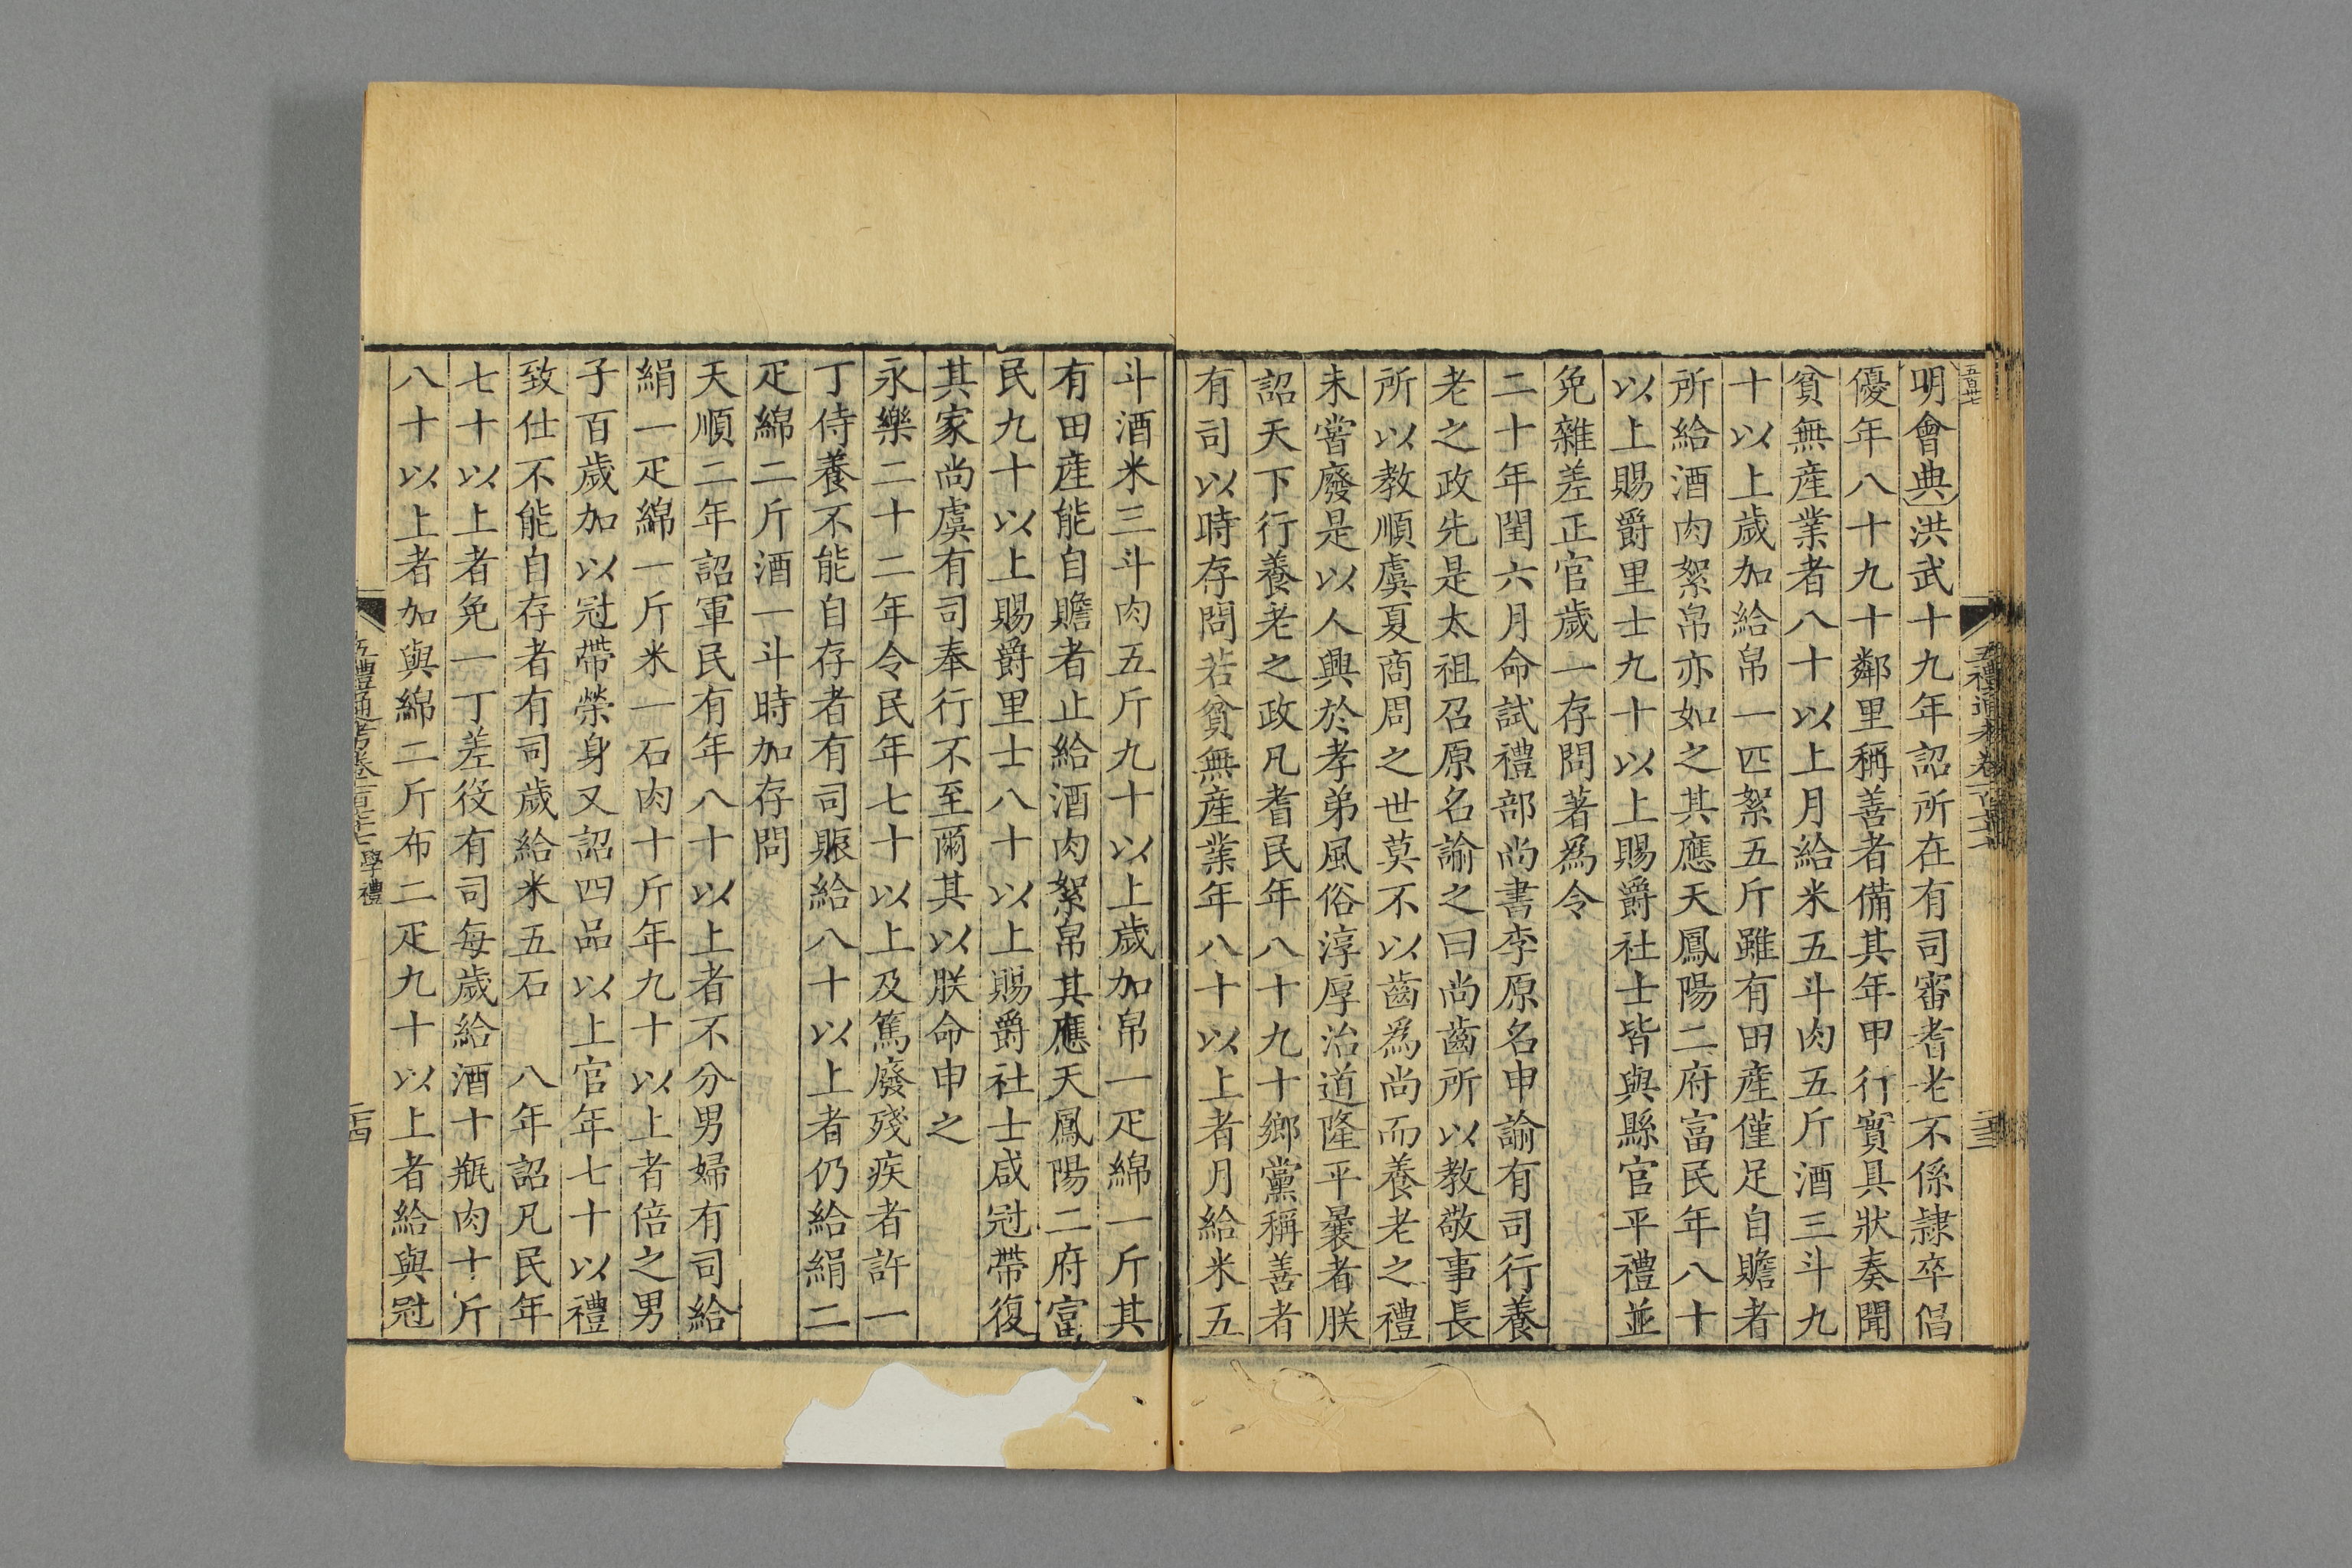 明會典洪武十九年詔所在有司審耆老不係隷卒倡
優年八十九十鄰里稱善者備其年甲行實具狀奏聞
貧無産業者八十以上月給米五斗肉五斤酒三斗九
十以上歲加給帛一匹絮五斤雖有田産僅足自贍者
所給酒肉絮帛亦如之其應天鳳陽二府富民年八十
以上賜爵里士九十以上賜爵社士皆與縣官平禮並
免雜差正官歲一存問著爲令
二十年閏六月命試禮部尚書李原名申諭有司行養
老之政先是太祖召原名諭之曰尚齒所以教敬事長
所以教順虞夏商周之世莫不以齒爲尚而養老之禮
未嘗廢是以人興於孝弟風俗淳厚治道隆平曩者朕
詔天下行養老之政凡耆民年八十九十鄉黨稱善者
有司以時存問若貧無産業年八十以上者月給米五
斗酒米三斗肉五斤九十以上歲加帛一疋綿一斤其
有田産能自贍者止給酒肉絮帛其應天鳳陽二府富
民九十以上賜爵里士八十以上賜爵社士咸冠帶復
其家尚虞有司奉行不至爾其以朕命申之
永樂二十二年令民年七十以上及篤廢殘疾者許一
丁侍養不能自存者有司賑給八十以上者仍給絹二
疋綿二斤酒一斗時加存問
天順二年詔軍民有年八十以上者不分男婦有司給
絹一疋綿一斤米一石肉十斤年九十以上者倍之男
子百歲加以冠帶榮身又詔四品以上官年七十以禮
致仕不能自存者有司歲給米五石　八年詔凡民年
七十以上者免一丁差役有司每歲給酒十瓶肉十斤
八十以上者加與綿二斤布二疋九十以上者給與冠
五禮通考卷一百七十七 學禮